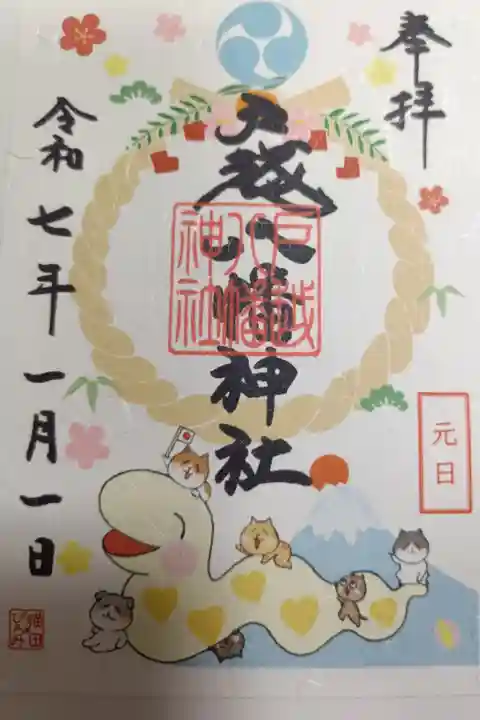 奉拝
戸越八幡神社
戸越
八幡
神社
元日
令和七年一月一日